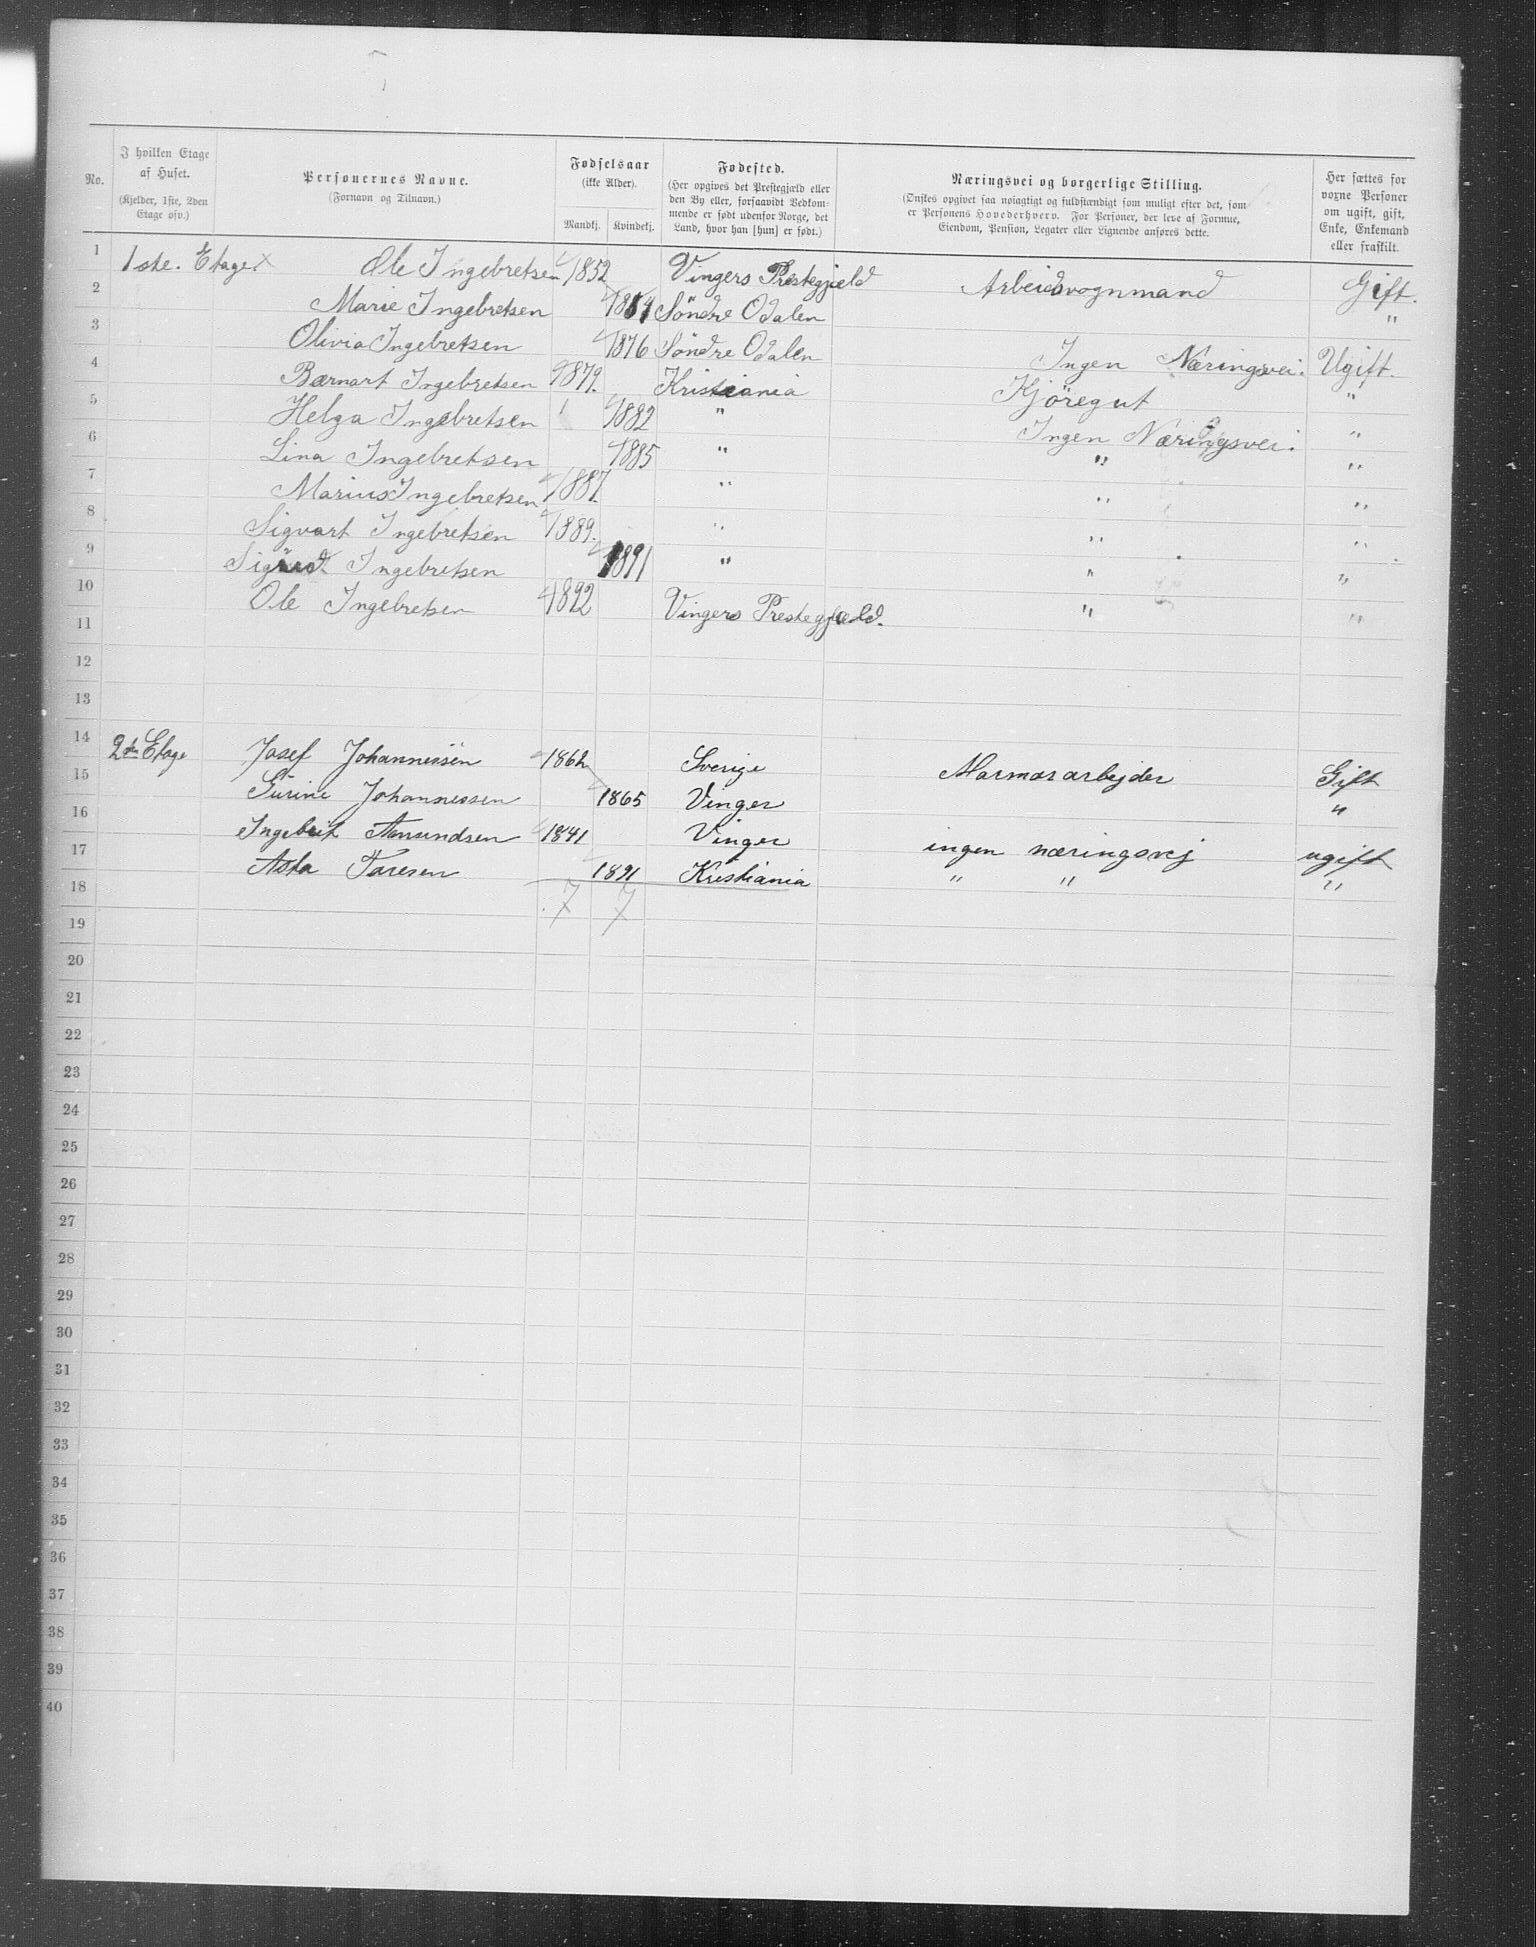 No. I hvilken Etage af Huset. (Kjelder, 1ste, 2den Etage osv.) Personernes Navne. (Fornavn og Tilnavn.) Fødselsaar (ikke Alder). Mandkj. Kvindekj. Fødested. (Her opgives det Prestegjæld eller den By eller, forsaavidt Vedkommende er født udenfor Norge, det Land, hvor han [hun] er født.) Næringsvei og borgerlige Stilling. (Ønskes opgivet saa nøiagtigt og fuldstændigt som muligt efter det, som er Personens Hovederhverv. For Personer, der leve af Formue, Eiendom, Pension, Legater eller Lignende anføres dette. Her sættes for voxne Personer om ugift, gift, Enke, Enkemand eller fraskilt.
1 1ste. Etage. x Ole Ingebretsen 1852 Vingers Prestegjield Arbeidsvognmand Gift.
2 Marie Ingebretsen 1854 Söndre Odalen "
3 Olivia Ingebretsen 1876 Söndre Odalen Ingen Næringsvei. Ugift.
4 Bærnart Ingebretsen 1879. Kristiania Kjöregut "
5 Helga Ingebretsen 1882 " Ingen Næringsvei. "
6 Lina Ingebretsen 1885 " " "
7 Marius Ingebretsen 1887. " " "
8 Sigvart Ingebretsen 1889. " " "
9 Ingebretsen 1891 " " "
10 Ole Ingebretsen 1892 Vingers Prestegjæld. " "
11
12
13
14 2den Etage Josef Johannessen 1862 Sverige Marmorarbejder Gift
15 Gurine Johannessen 1865 Vinger "
16 Ingebrit Amundsen 1841 Vinger ingen næringsvej ugift
17 Asta Taresen 1891 Kristiania " " "
18 7 7
19
20
21
22
23
24
25
26
27
28
29
30
31
32
33
34
35
36
37
38
39
40